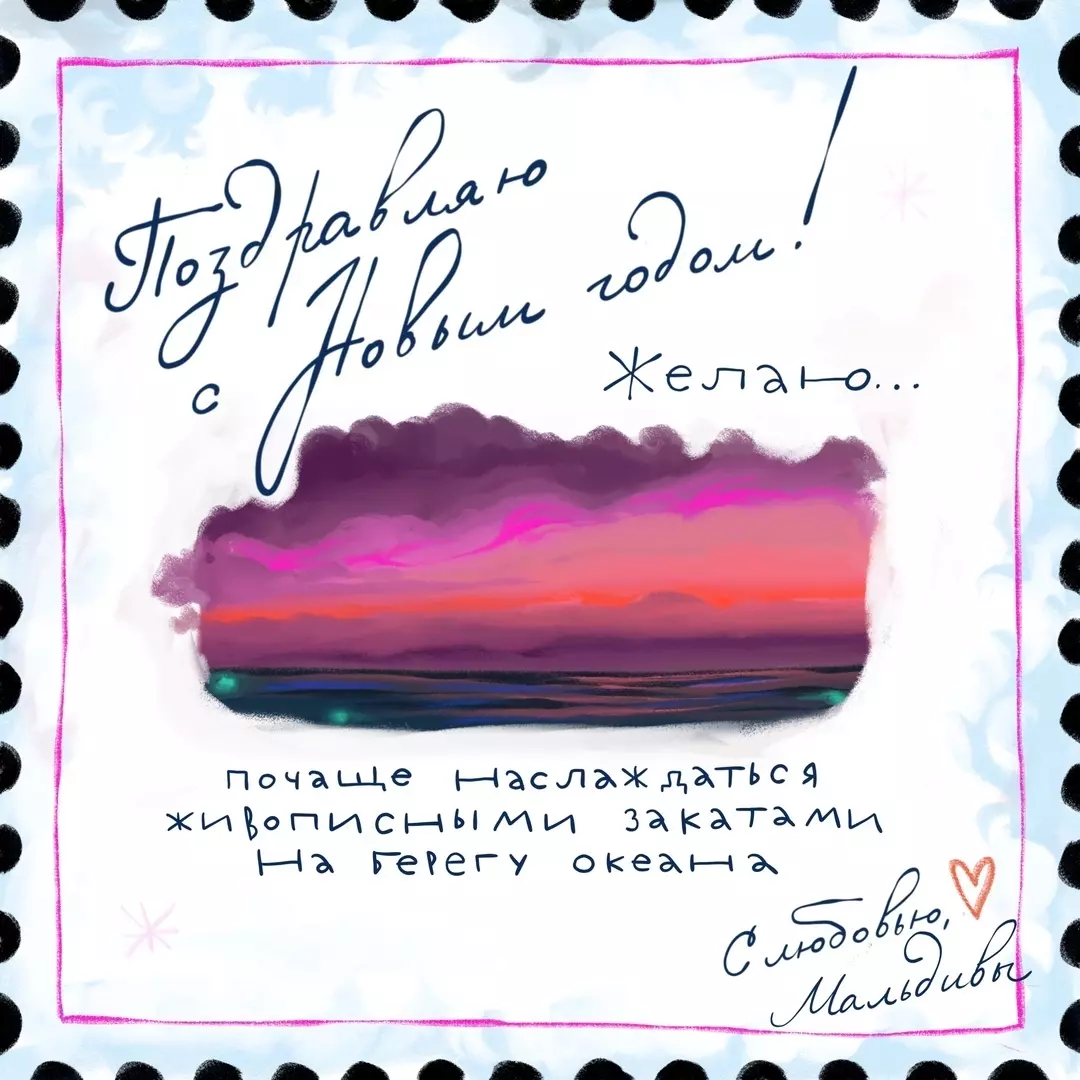 Поздравляю
с Новым годом!
Желаю...
почаще наслаждаться
живописными закатами
на берегу океана
С любовью,
Мальдивы